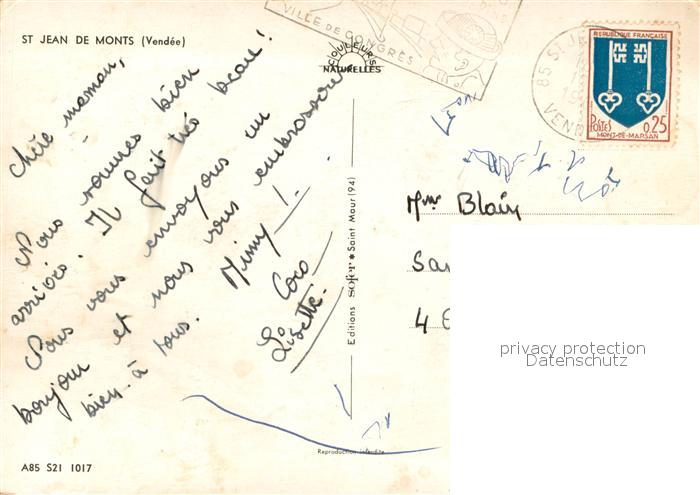 ST JEAN DE MONTS (Vendée)
Chère maman,
Nous sommes bien
arrivés. Il fait très beau!
Nous vous envoyons un
bonjour et nous vous embrassons
bien à tous. Mimy
Coco
Lisette.
VILLE DE CONGRÈS
COULEURS
NATURELLES
85 ST J
VEND
REPUBLIQUE FRANÇAISE
POSTES 0,25
MONT-DE-MARSAN
Mme Blain
Sa
4
Editions sofer ★ Saint Maur (94)
Reproduction interdite
A85 S21 1017
privacy protection
Datenschutz